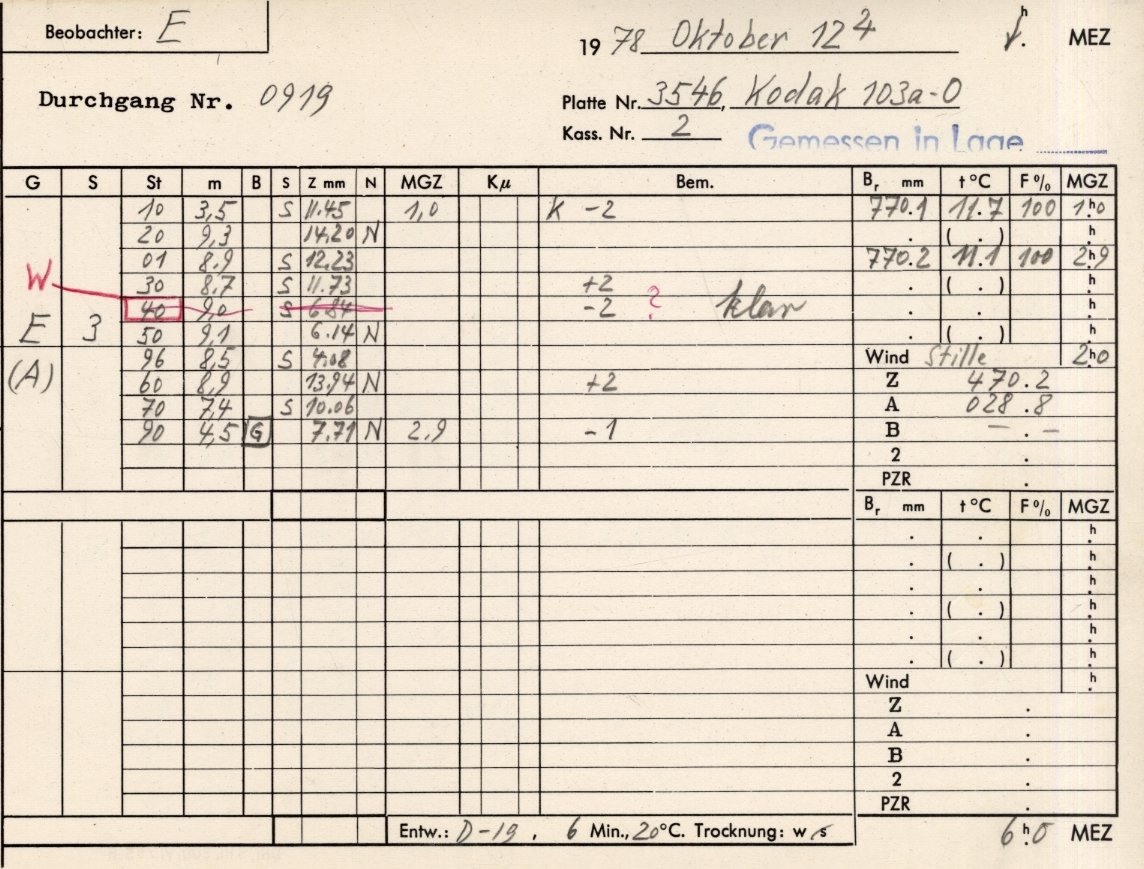 Beobachter: E
19 78 Oktober 12 MEZ
Durchgang Nr. 0919
Platte Nr. 3546, Kodak 103a-O
Kass. Nr. 2 Gemessen in Lage
G S St m B S Z mm N MGZ Kμ Bem. Br mm t °C F % MGZ
10 3,5 S 11.45 1,0 K -2 770.1 11.7 100 1h.0
20 9,3 14.20 N . ( . ) h.
01 8,9 S 12.23 770.2 11.1 100 2h.9
W 30 8,7 S 11.73 +2 . ( . ) h.
40 9,0 S 6.84 -2 ? klar . . h.
E 3 50 9,1 6.14 N . ( . ) h.
96 8,5 S 4.08 Wind Stille 2h.0
(A) 60 8,9 13.94 N +2 Z 470.2
70 7,4 S 10.06 A 028.8
90 4,5 G 7.71 N 2,9 -1 B – . –
2 .
PZR .
Br mm t °C F % MGZ
. . h.
. ( . ) h.
. . h.
. ( . ) h.
. . h.
. ( . ) h.
Wind h.
Z .
A .
B .
2 .
PZR .
Entw.: D-19, 6 Min., 20°C. Trocknung: w s 6h.0 MEZ